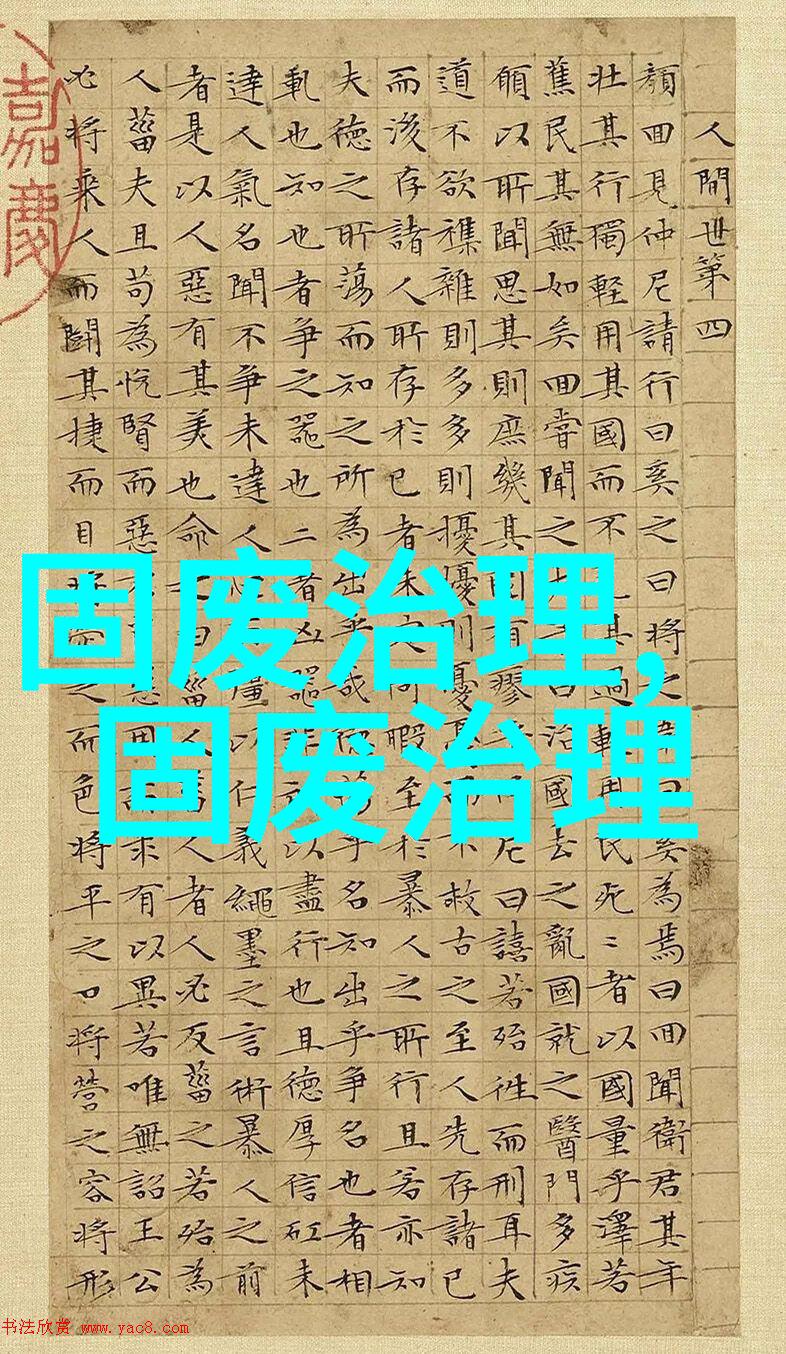 人間世第四
顏回見仲尼請行曰奚之曰將之奚為焉曰回聞衛君其年
壯其行獨輕用其國而不其過輕用民死〻者以國量乎澤若
蕉民其無如矣回嘗聞之治國去之亂國就之醫門多疾
願以所聞思其則庶幾其國有瘳尼曰譆若殆往而刑耳夫
道不欲襍雜則多多則擾擾則憂而不救古之至人先存諸已
而後存諸人所存於已者未何暇至於暴人之所行且若亦知
夫德之所蕩而知之所為出乎哉乎名知出乎爭名也者相
軋也知也者爭之器也二者凶器非以盡行也且德厚信矼未
達人氣名聞不爭未達人以仁義繩墨之言術暴人之前
者是以人惡有其美也命曰菑人者人必反菑之若殆為
人菑夫且苟為悅賢而惡用求有以異若唯無詔王公
必將乘人而鬭其捷而目將之而色將平之口將營之容將形
嘉慶
固废治理,
固废治理
书法欣赏 www.yac8.com